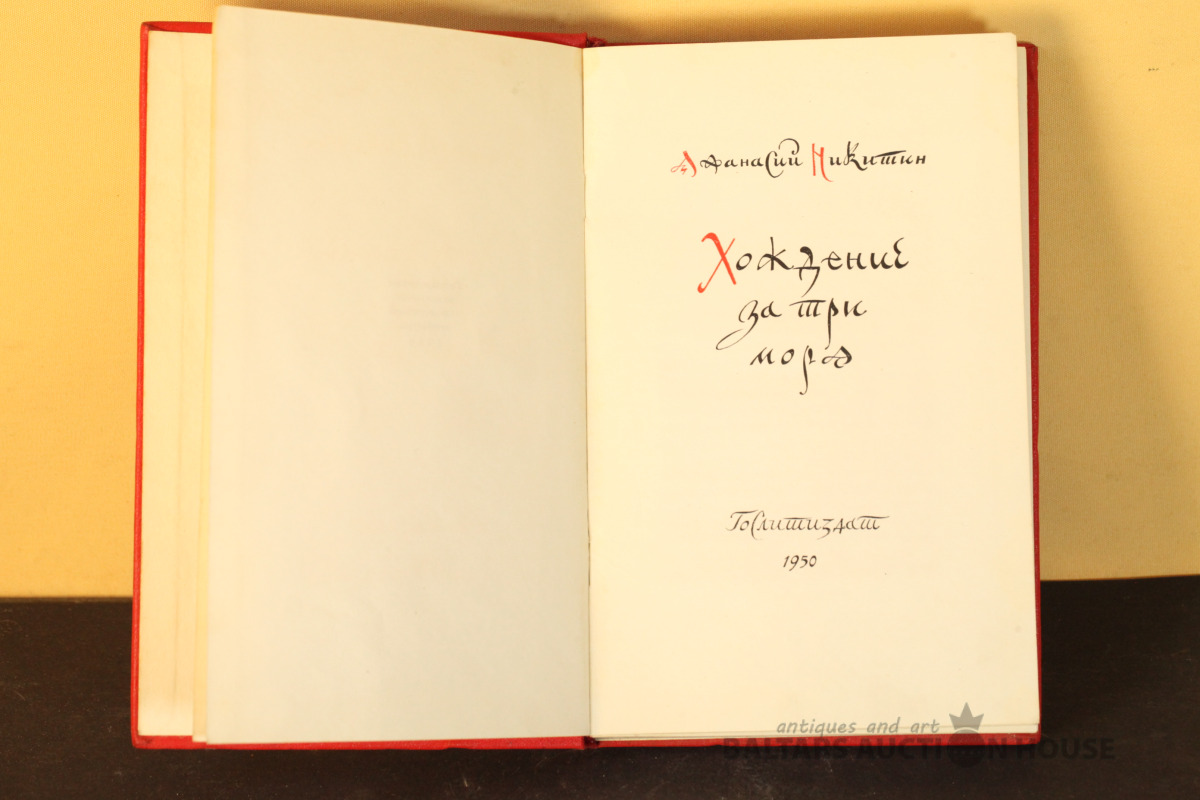 Афанасий Никитин
Хождение
за три
моря
Гослитиздат
1950
antiques and art
BALTARS AUCTION HOUSE